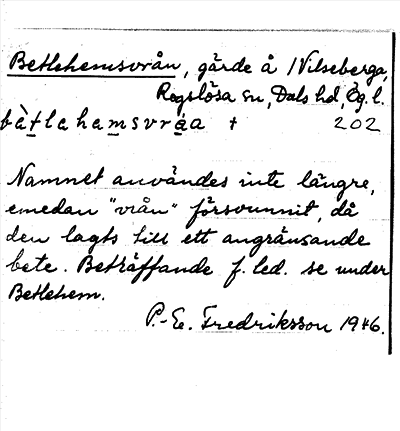 Betlehemsvrån, gärde å Nilseberga,
Rogslösa sn, Dals hd, Ög. l.
bètlahamsvráa † 202
Namnet användes inte längre,
emedan "vrån" försvunnit, då
den lagts till ett angränsande
bete. Beträffande f. led. se under
Betlehem.
P.-E. Fredriksson 1946.